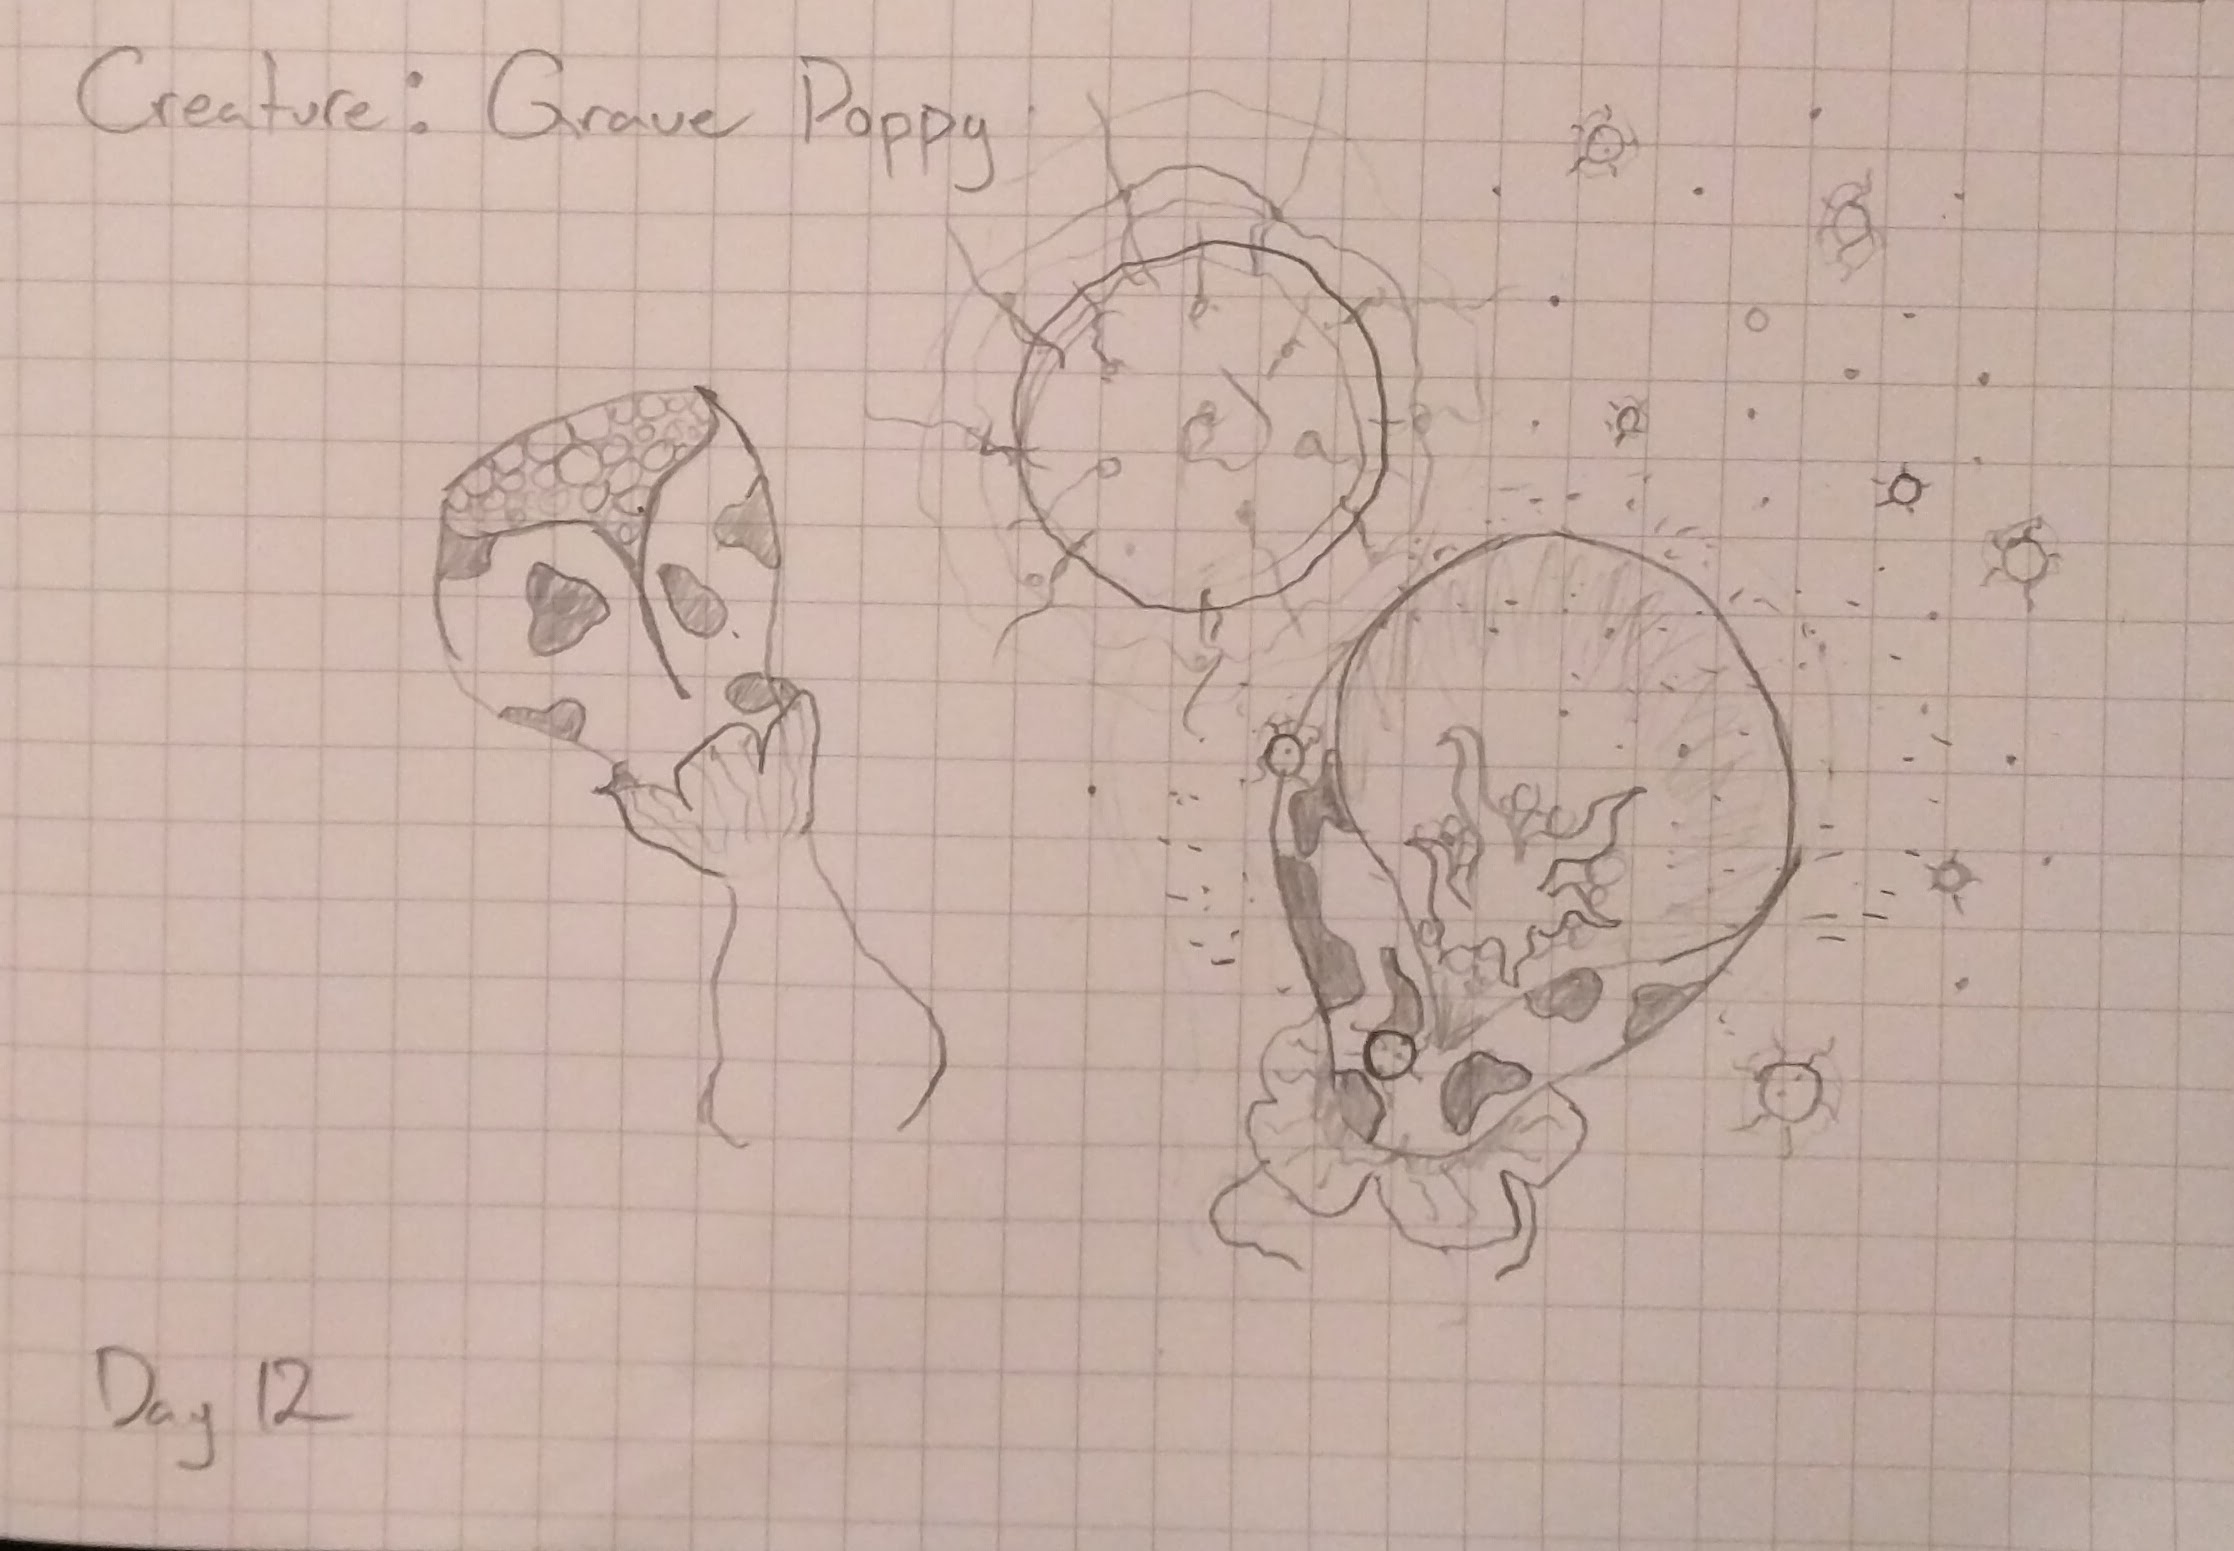 Creature: Grave Poppy
Day 12